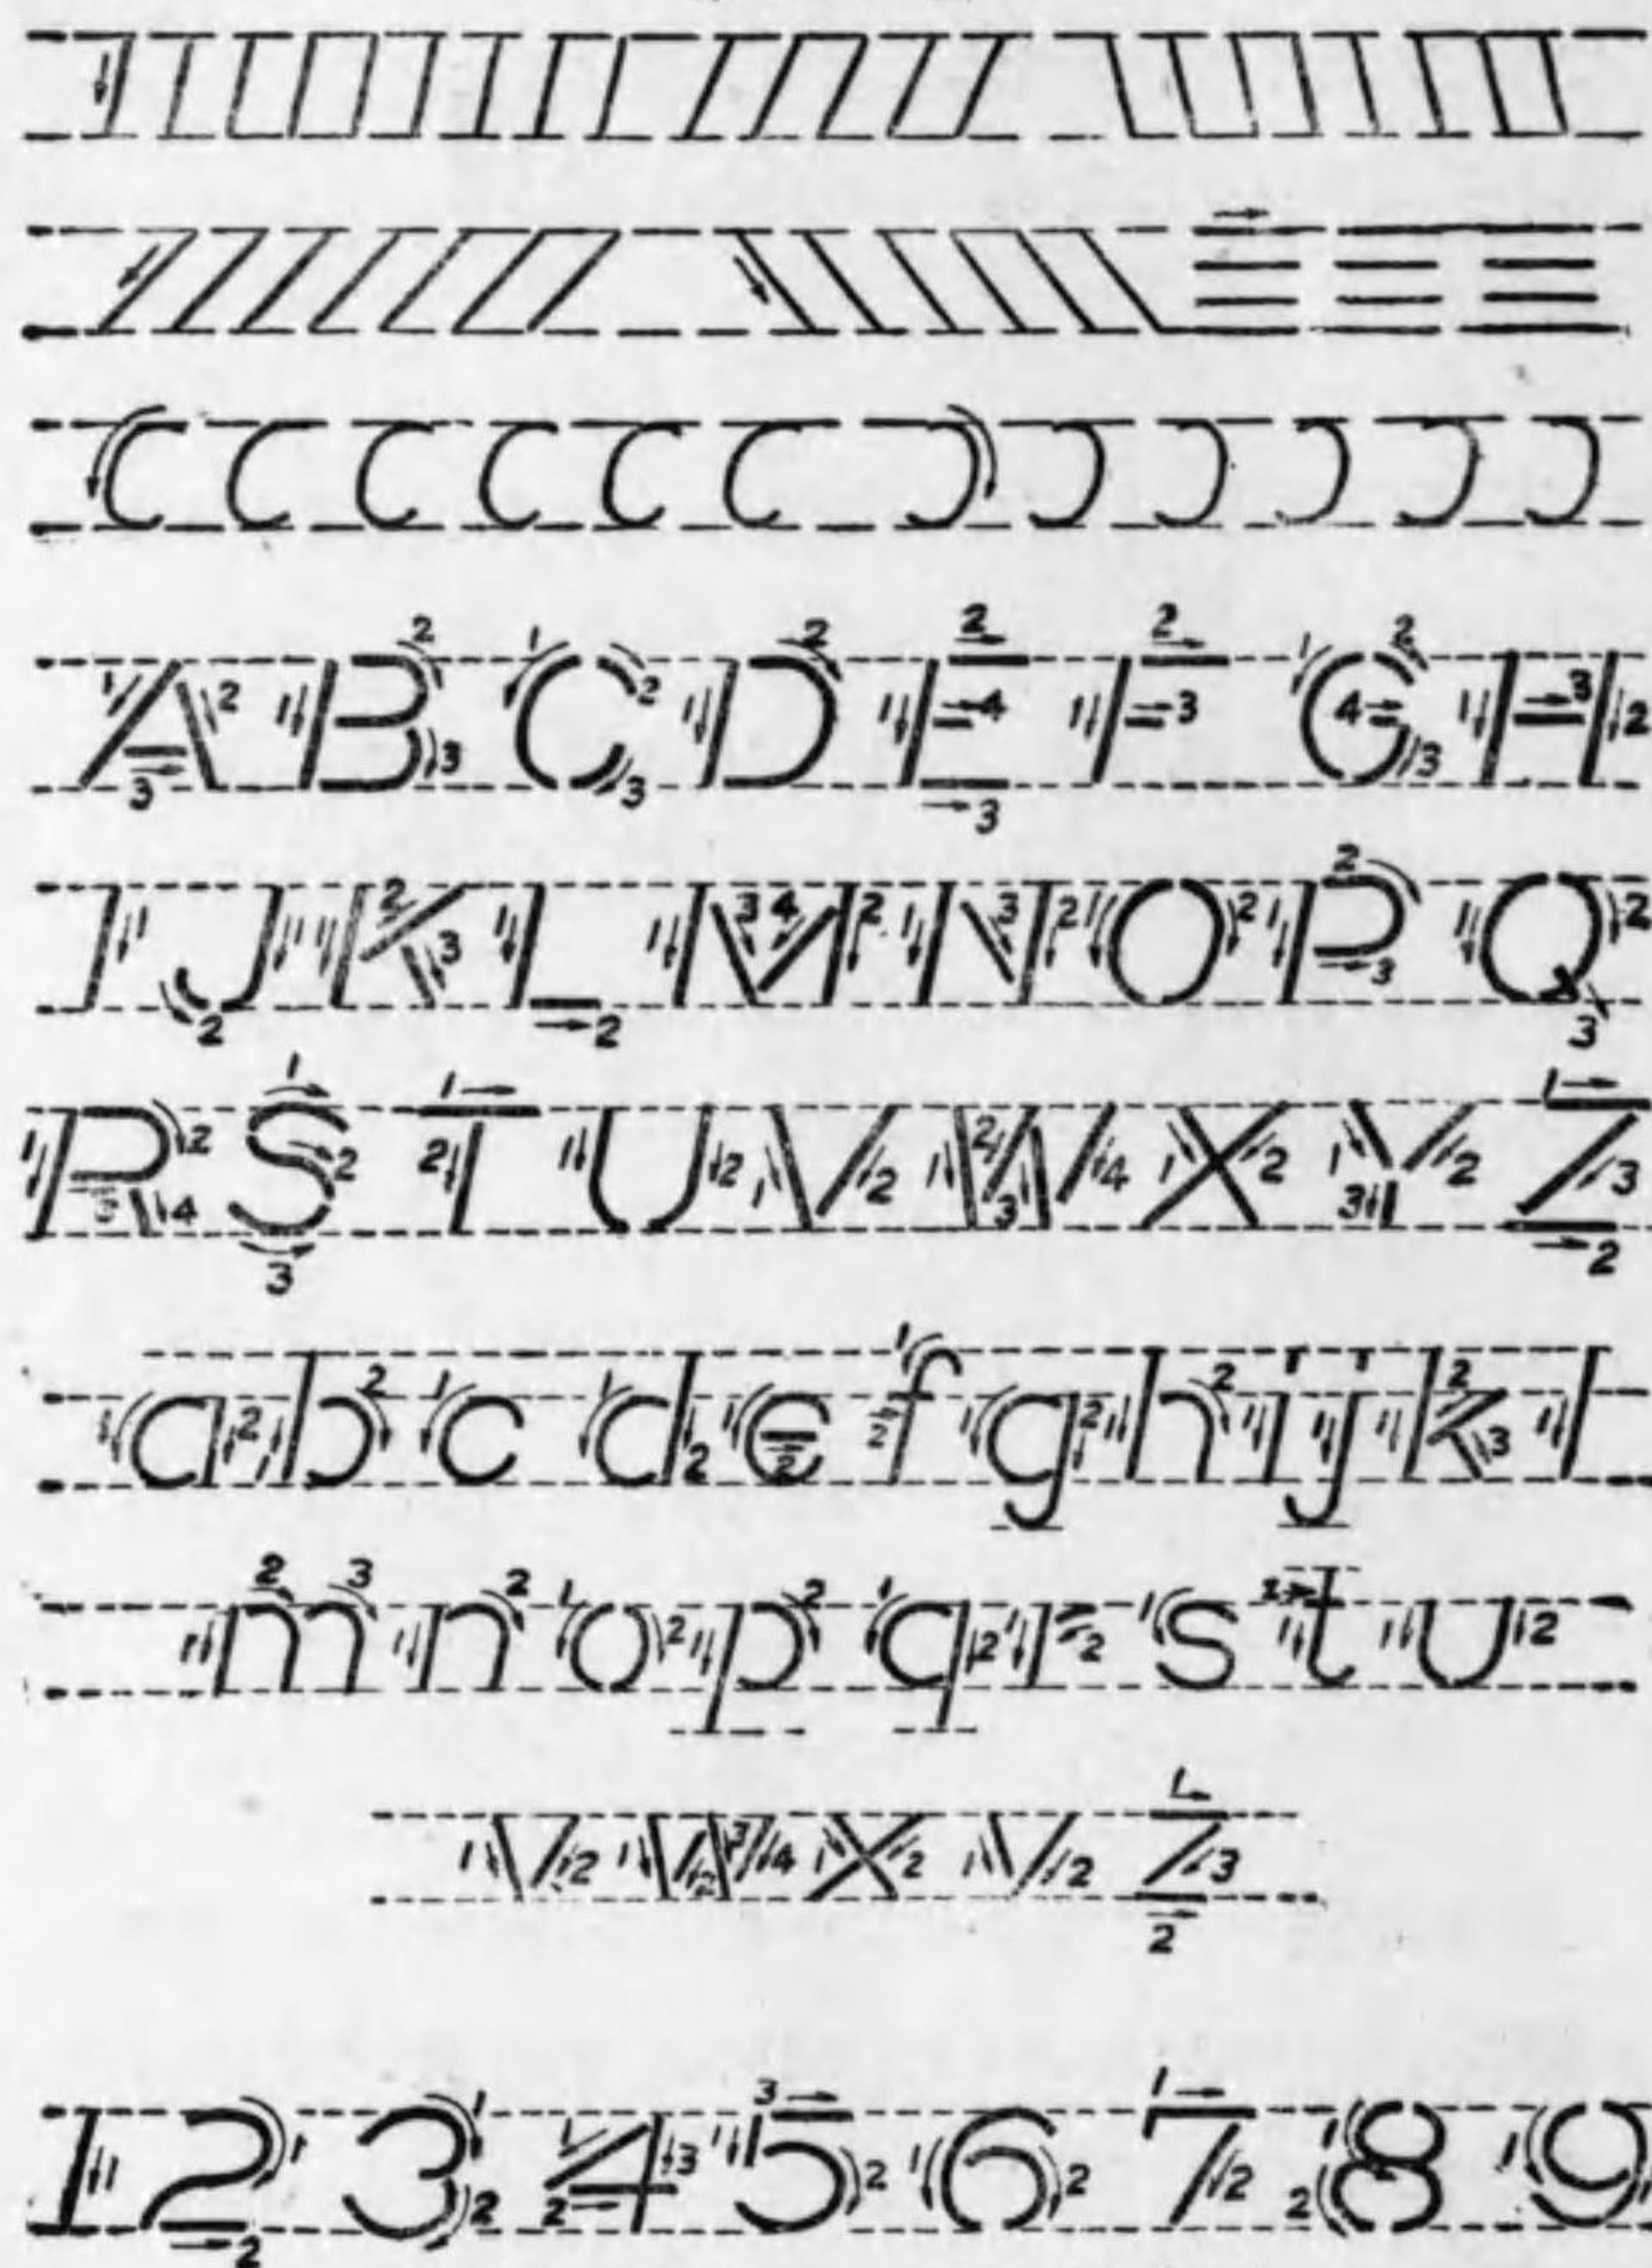 A B C D E F G H
I J K L M N O P Q
R S T U V W X Y Z
a b c d e f g h i j k l
m n o p q r s t u
v w x y z
1 2 3 4 5 6 7 8 9